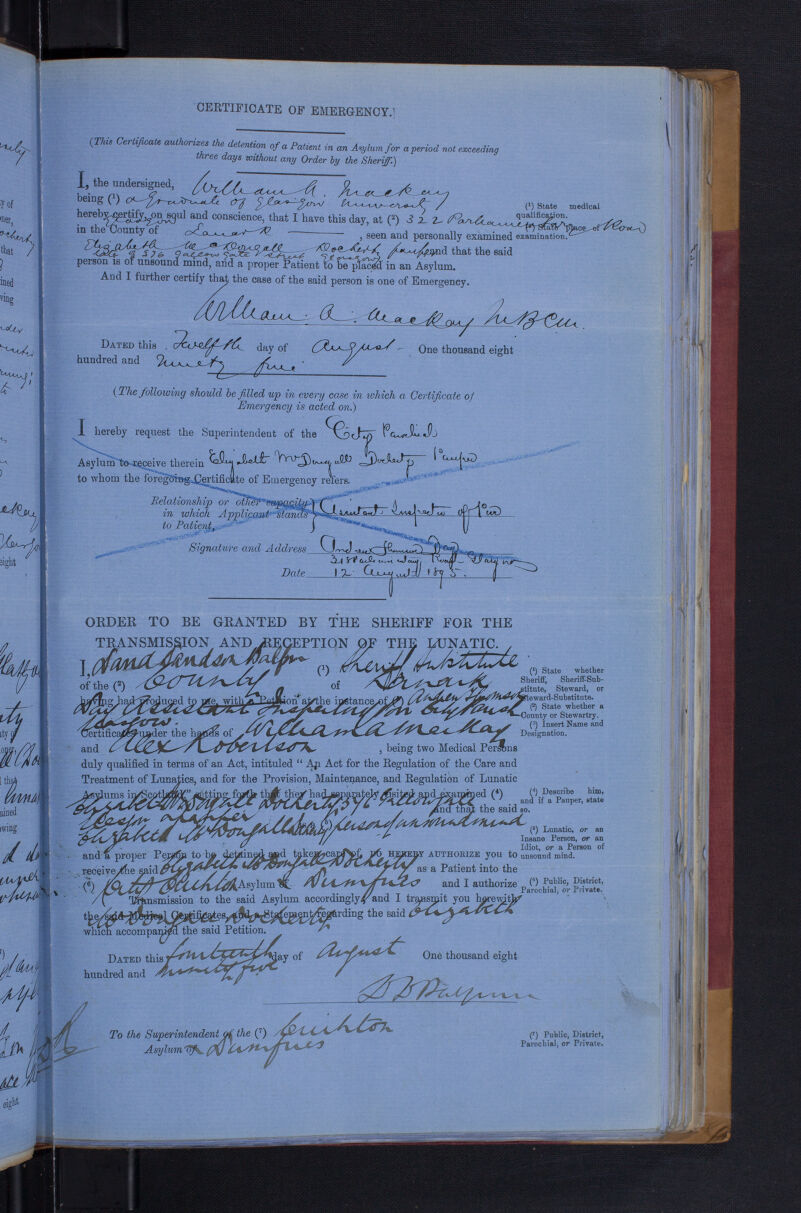 CERTIFICATE OF EMERGENCY.
(This Certificate authorizes the detention of a Patient in an Asylum for a period not exceeding
three days without any Order by the Sheriff.)
I, the undersigned, William A. Mackay
being (¹) a Graduate of Glasgow University
(¹) State medical
qualification.
hereby certify, on soul and conscience, that I have this day, at (²) 322 Parliamentary Road
Glasgow
(²) State place of
examination.
in the County of Lanark , seen and personally examined
Elizabeth McDougall Docherty pauper and that the said
late of 576 Gallowgate Street Glasgow
person is of unsound mind, and a proper Patient to be placed in an Asylum.
And I further certify that the case of the said person is one of Emergency.
William A. Mackay M.B.C.M.
DATED this Twelfth day of August One thousand eight
hundred and Ninety five
(The following should be filled up in every case in which a Certificate of
Emergency is acted on.)
I hereby request the Superintendent of the City Parochial
Asylum to receive therein Elizabeth McDougall Docherty Pauper
to whom the foregoing Certificate of Emergency refers.
Relationship or other capacity
in which Applicant stands
to Patient,
Assistant Inspector of Poor
Signature and Address Andrew Thomson Day
Glasgow
Date 12 August 1895.
ORDER TO BE GRANTED BY THE SHERIFF FOR THE
TRANSMISSION AND RECEPTION OF THE LUNATIC.
I, David Sandson Balfour (¹) Sheriff Substitute
of the (²) County of Lanark
(¹) State whether
Sheriff, Sheriff-Sub-
stitute, Steward, or
Steward-Substitute.
(²) State whether a
County or Stewartry.
(³) Insert Name and
Designation.
having had produced to me, with a Petition at the instance of (³) Andrew Thomson
Day Assistant Inspector for City Parish
Glasgow.
Certificates under the hands of William A Mackay
and Alex Robertson , being two Medical Persons
duly qualified in terms of an Act, intituled "An Act for the Regulation of the Care and
Treatment of Lunatics, and for the Provision, Maintenance, and Regulation of Lunatic
Asylums in Scotland," setting forth that they had separately visited and examined (⁴)
(⁴) Describe him,
and if a Pauper, state
so.
Elizabeth McDougall Docherty 576 Gallowgate
Glasgow a pauper and that the said
Elizabeth McDougall Docherty is a (⁵) person of unsound mind
(⁵) Lunatic, or an
Insane Person, or an
Idiot, or a Person of
unsound mind.
and a proper Person to be detained and taken care of, DO HEREBY AUTHORIZE you to
receive the said Elizabeth McDougall Docherty as a Patient into the
(⁶) Crichton Asylum of Dumfries and I authorize
(⁶) Public, District,
Parochial, or Private.
Transmission to the said Asylum accordingly; and I transmit you herewith
the said Medical Certificates, and a Statement regarding the said Elizabeth
McDougall Docherty
which accompanied the said Petition.
DATED this fourteenth day of August One thousand eight
hundred and ninety five
D D Balfour
To the Superintendent of the (⁷) Crichton
Asylum of Dumfries
(⁷) Public, District,
Parochial, or Private.